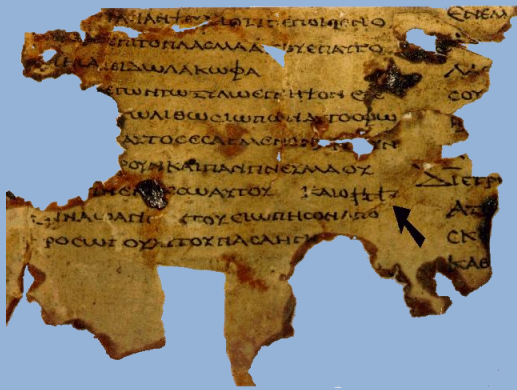 ΟΤΙ ΠΕΠΟΙΘΕΝ Ο
ΕΠΙ ΤΟ ΠΛΑΣΜΑ Α ΟΥ ΕΠ ΑΥΤΟ
ΙΔΩΛΑ ΚΩΦΑ
ΓΩΝ ΤΩ ΞΥΛΩ ΕΓΝΗΨΟΝ ΕΞΕ
ΤΩ ΛΙΘΩ ΣΙΩΠΩΝ ΑΥΤΟ ΦΩ
ΑΥΤΟ ΕΣΑΓΜΕΝΟΝ
ΡΟΥΝ ΚΑΙ ΠΑΝ ΠΝΕΥΜΑ ΟΥΚ
ΕΣΩ ΑΥΤΟΥ ΚΑΙ Ο 𐤉𐤄𐤅𐤄
ΝΑΩ ΑΓ ΤΟΥ ΣΙΩΠΗΣΟΝ ΑΠΟ
ΡΟΣΩΠΟΥ ΑΥΤΟΥ ΠΑΣΑ Η Γ
ΕΝΕΜ
ΣΟΥ
ΔΙΕΤΡ
ΑΠ
ΣΚ
ΚΑΘ